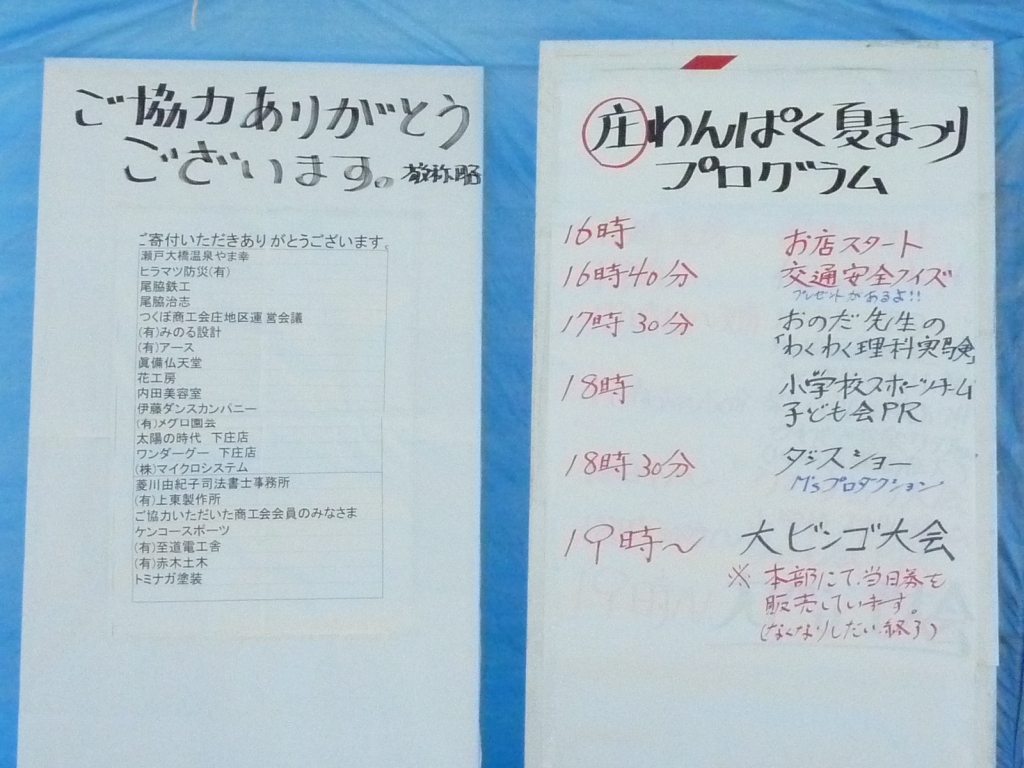 ご協力ありがとう
ございます。敬称略
ご寄付いただきありがとうございます。
瀬戸大橋温泉やま幸
ヒラマツ防災(有)
尾脇鉄工
尾脇治志
つくぼ商工会庄地区運営会議
(有)みのる設計
(有)アース
眞備仏天堂
花工房
内田美容室
伊藤ダンスカンパニー
(有)メグロ園芸
太陽の時代 下庄店
ワンダーグー 下庄店
(株)マイクロシステム
菱川由紀子司法書士事務所
(有)上東製作所
ご協力いただいた商工会会員のみなさま
ケンコースポーツ
(有)至道電工舎
(有)赤木土木
トミナガ塗装
庄わんぱく夏まつり
プログラム
16時 お店スタート
16時40分 交通安全クイズ
プレゼントがあるよ!!
17時30分 おのだ先生の
「わくわく理科実験」
18時 小学校スポーツチーム
子ども会PR
18時30分 ダンスショー
M'sプロダクション
19時〜 大ビンゴ大会
※本部にて、当日券を
販売しています。
(なくなりしだい終了)